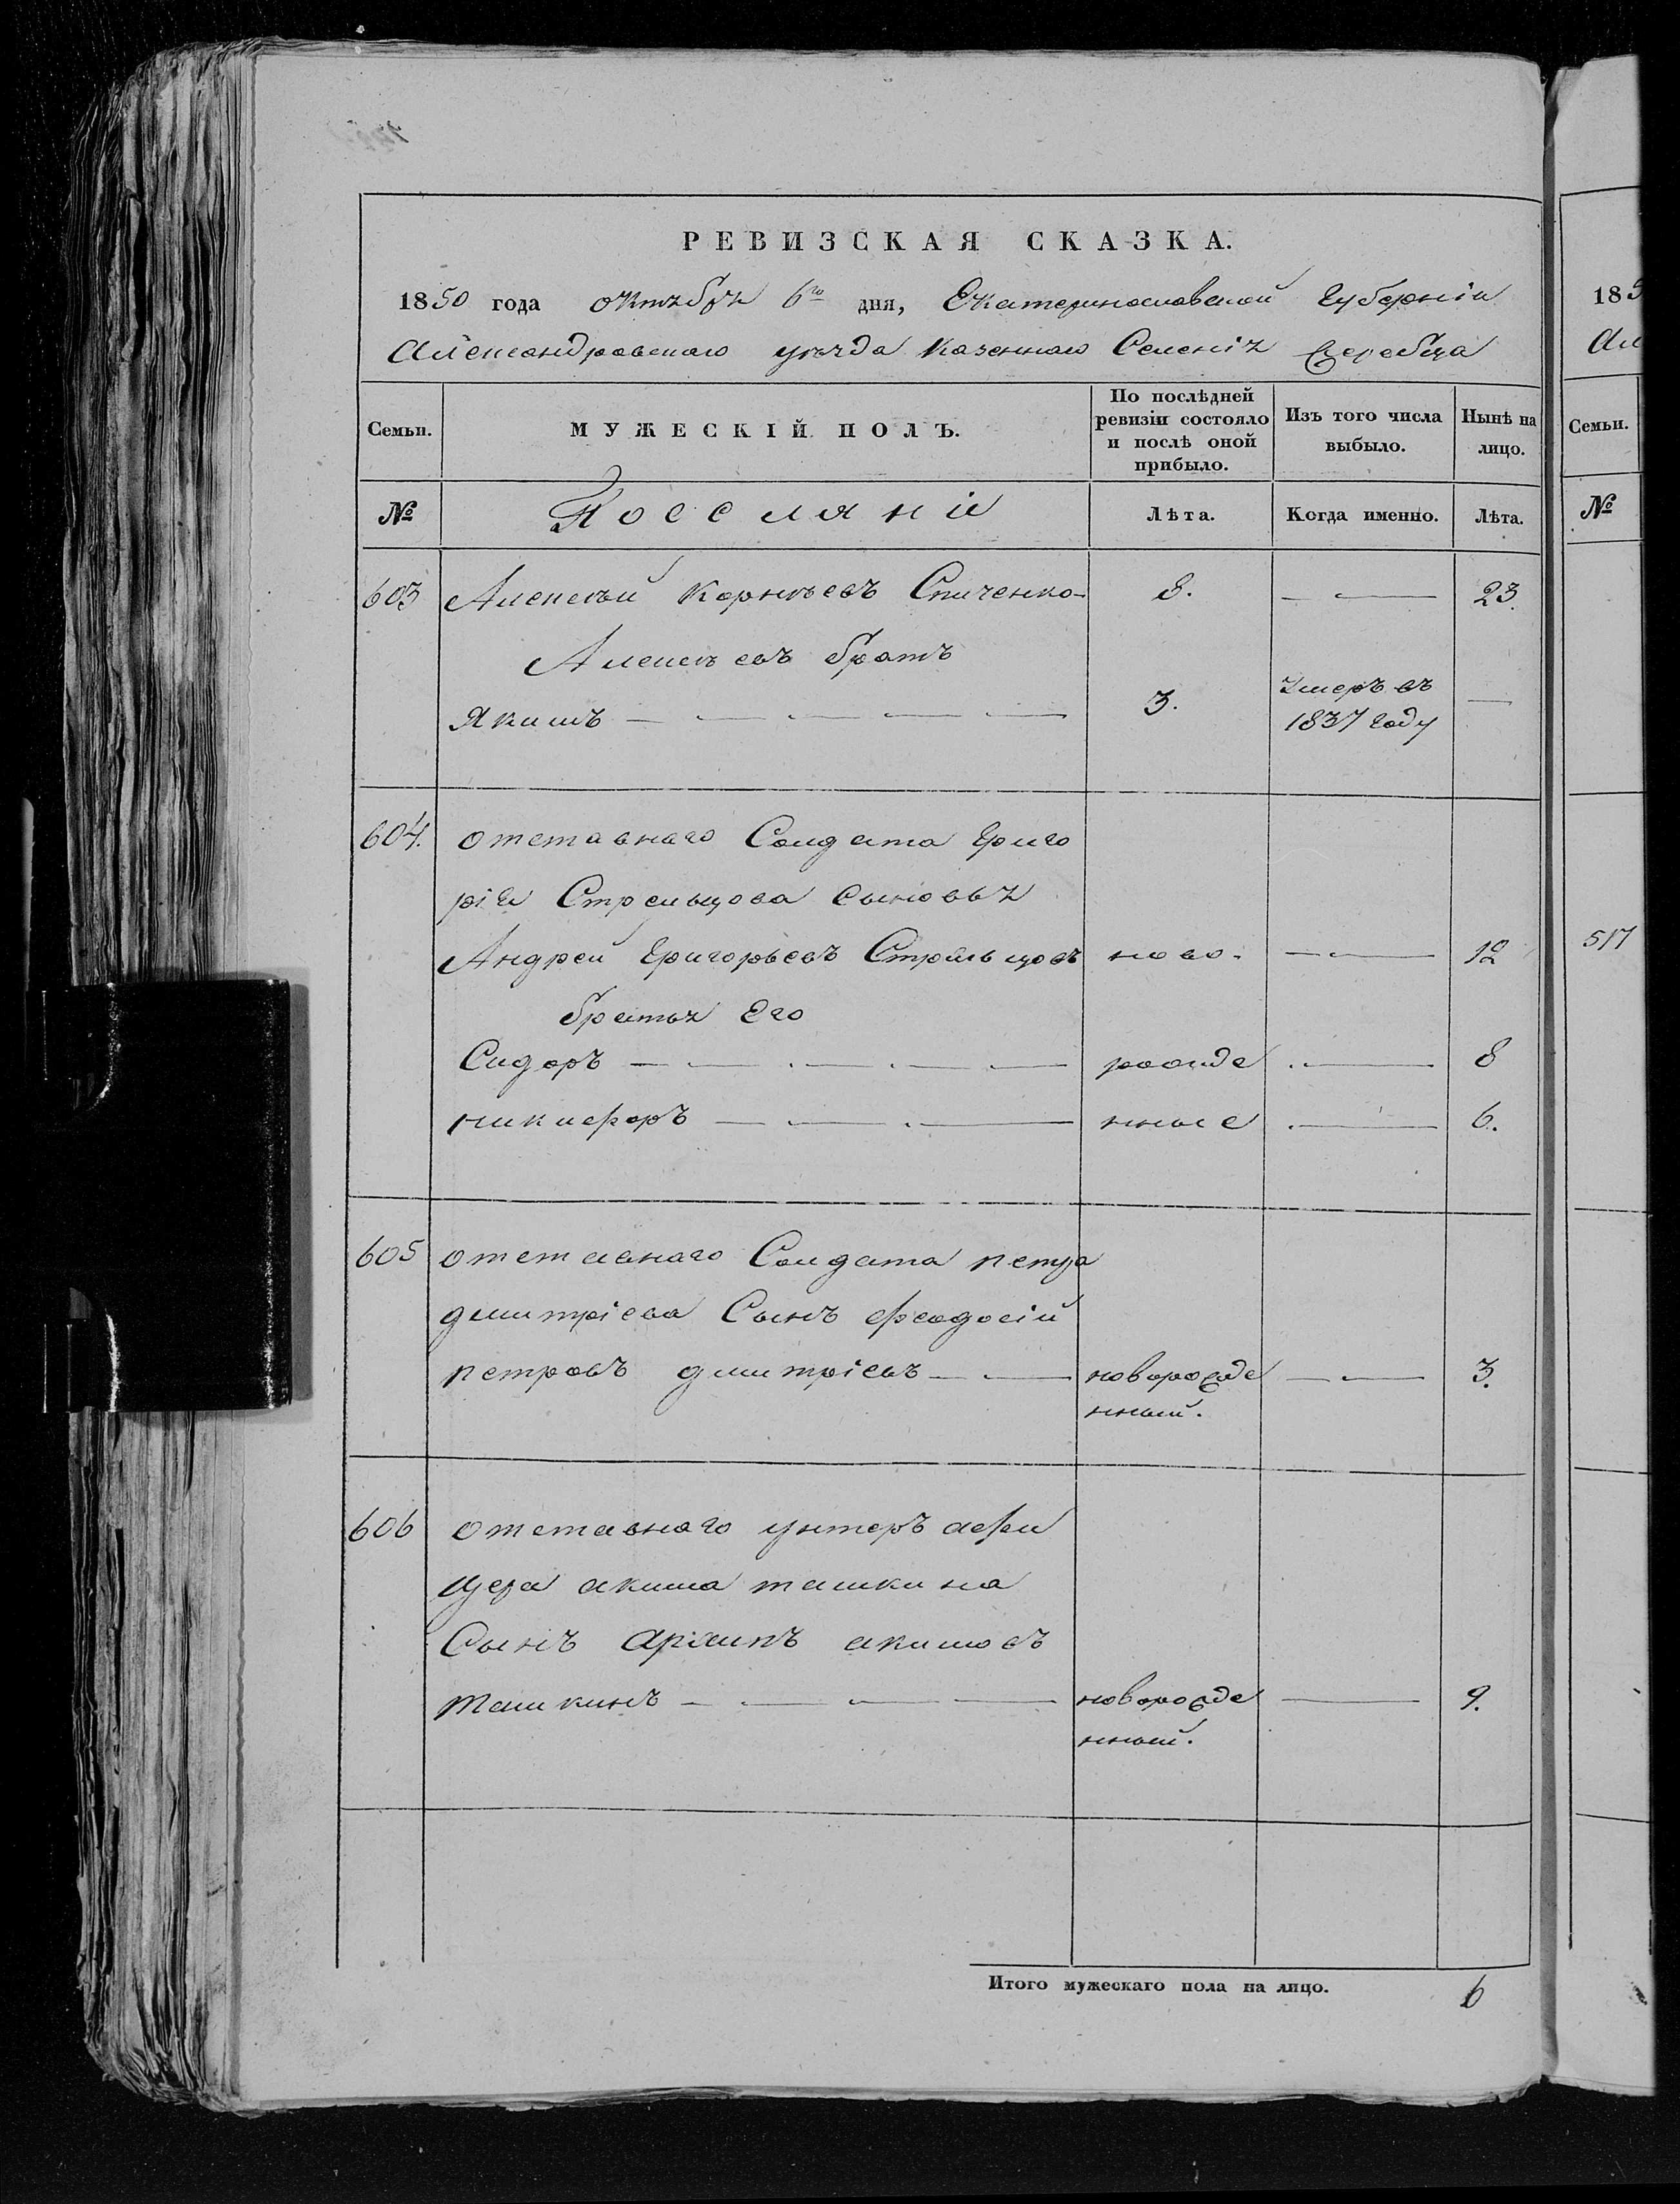 РЕВИЗСКАЯ СКАЗКА.
1850 года октября 6го дня, Екатеринославской Губерніи
Александровскаго уѣзда казеннаго Селенія Жеребца
Семьи. МУЖЕСКІЙ ПОЛЪ. По послѣдней ревизіи состояло и послѣ оной прибыло. Изъ того числа выбыло. Нынѣ на лицо.
№ Поселяніе Лѣта. Когда именно. Лѣта.
603 Алексѣй Корнѣевъ Спиченко 8. — 23.
Алексѣевъ братъ
Якимъ — 3. Умеръ въ 1837 году —
604. отставнаго Солдата Григо
рія Стрельцова сыновья
Андрей Григорьевъ Стрѣльцовъ ново- — 12
братья Его
Сидоръ — рожде — 8
никифоръ — нные — 6.
605 отставнаго Солдата петра
дмитріева Сынъ феодосій
петровъ дмитріевъ — новорожде — 3.
нный.
606 отставнаго унтеръ афи
цера акима ташкина
Сынъ архипъ акимовъ
ташкинъ — новорожде — 9.
нный.
Итого мужескаго пола на лицо. 6
185
Ал
Семьи.
№
517